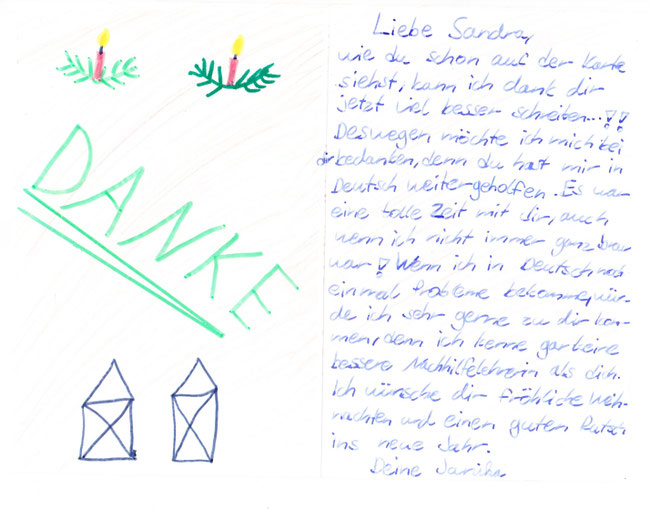 DANKE
Liebe Sandra,
wie du schon auf der Karte
siehst, kann ich dank dir
jetzt viel besser schreiben...!!
Deswegen möchte ich mich bei
dir bedanken, denn du hast mir in
Deutsch weitergeholfen. Es war
eine tolle Zeit mit dir, auch
wenn ich nicht immer ganz brav
war! Wenn ich in Deutsch noch
einmal Probleme bekomme, wür-
de ich sehr gerne zu dir kom-
men, denn ich kenne gar keine
bessere Nachhilfelehrerin als dich.
Ich wünsche dir fröhliche Weih-
nachten und einen guten Rutsch
ins neue Jahr.
Deine